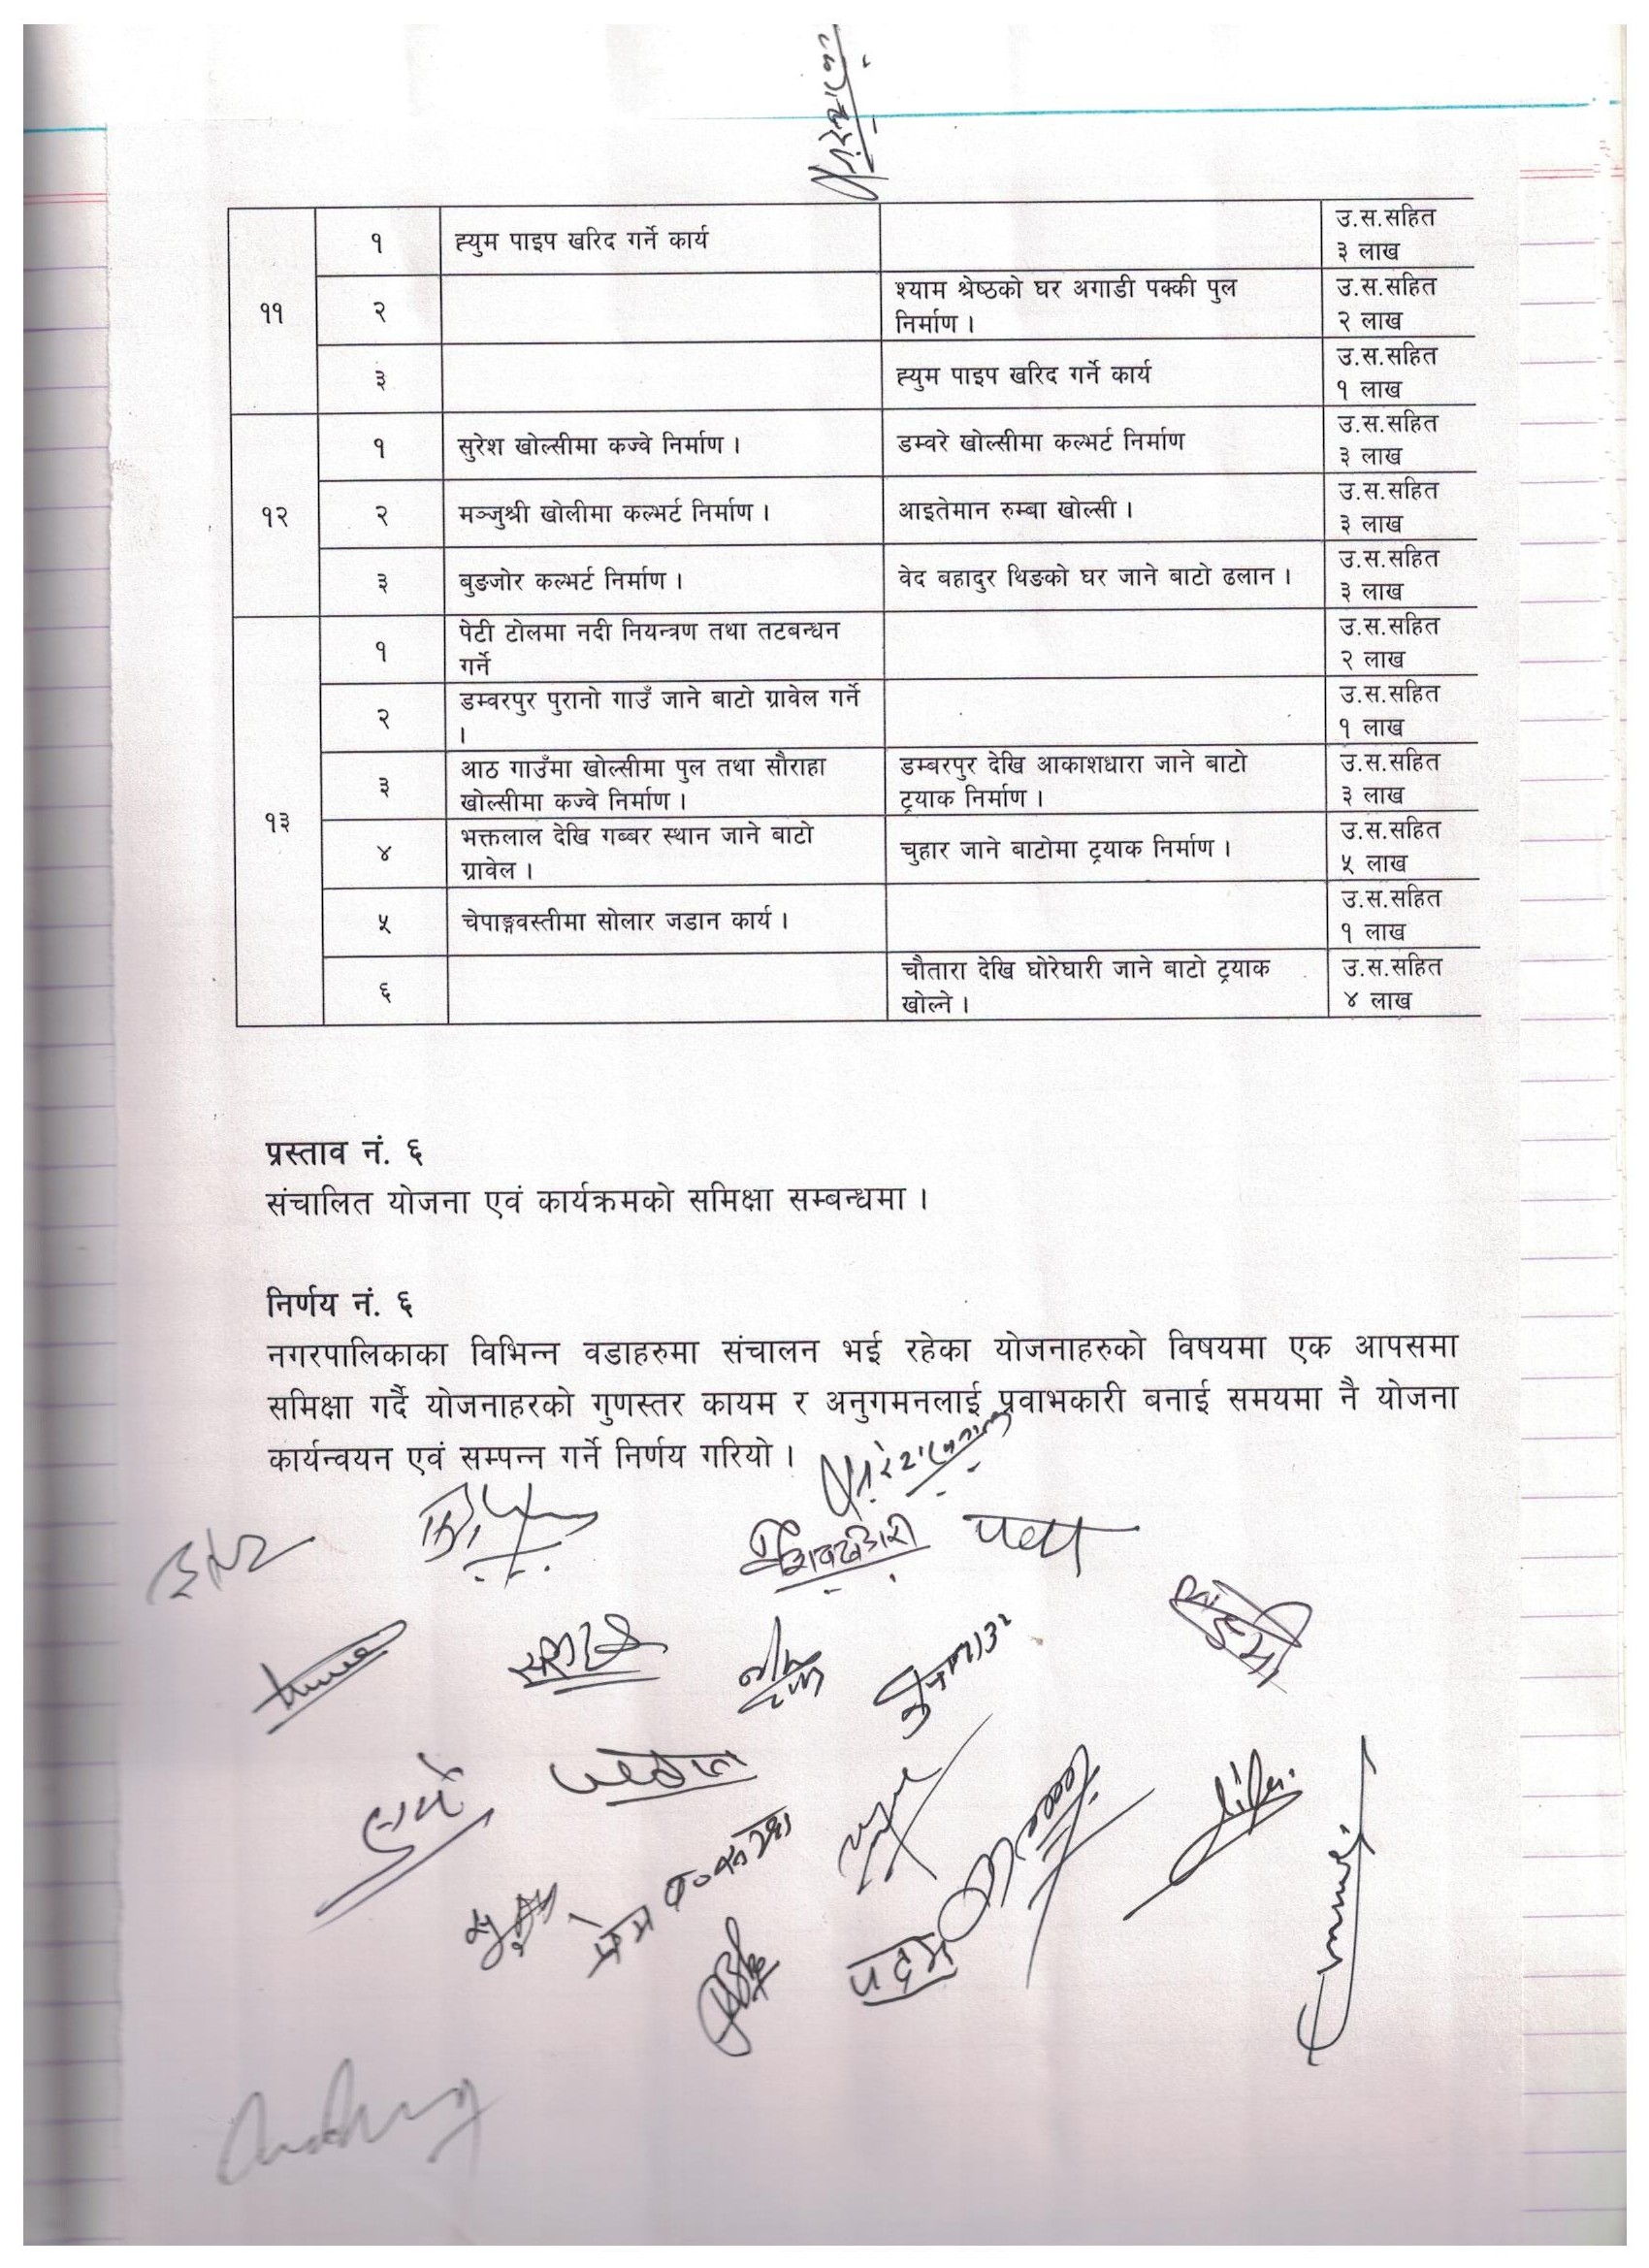 ११
१
ह्युम पाइप खरिद गर्ने कार्य
उ.स.सहित
३ लाख
२
श्याम श्रेष्ठको घर अगाडी पक्की पुल
निर्माण ।
उ.स.सहित
२ लाख
३
ह्युम पाइप खरिद गर्ने कार्य
उ.स.सहित
१ लाख
१२
१
सुरेश खोल्सीमा कज्वे निर्माण ।
डम्वरे खोल्सीमा कल्भर्ट निर्माण
उ.स.सहित
३ लाख
२
मञ्जुश्री खोलीमा कल्भर्ट निर्माण ।
आइतेमान रुम्बा खोल्सी ।
उ.स.सहित
३ लाख
३
बुङजोर कल्भर्ट निर्माण ।
वेद बहादुर थिङको घर जाने बाटो ढलान ।
उ.स.सहित
३ लाख
१३
१
पेटी टोलमा नदी नियन्त्रण तथा तटबन्धन
गर्ने
उ.स.सहित
२ लाख
२
डम्वरपुर पुरानो गाउँ जाने बाटो ग्रावेल गर्ने
।
उ.स.सहित
१ लाख
३
आठ गाउँमा खोल्सीमा पुल तथा सौराहा
खोल्सीमा कज्वे निर्माण ।
डम्बरपुर देखि आकाशधारा जाने बाटो
ट्रयाक निर्माण ।
उ.स.सहित
३ लाख
४
भक्तलाल देखि गब्बर स्थान जाने बाटो
ग्रावेल ।
चुहार जाने बाटोमा ट्रयाक निर्माण ।
उ.स.सहित
५ लाख
५
चेपाङ्गवस्तीमा सोलार जडान कार्य ।
उ.स.सहित
१ लाख
६
चौतारा देखि घोरेघारी जाने बाटो ट्रयाक
खोल्ने ।
उ.स.सहित
४ लाख
प्रस्ताव नं. ६
संचालित योजना एवं कार्यक्रमको समिक्षा सम्बन्धमा ।
निर्णय नं. ६
नगरपालिकाका विभिन्न वडाहरुमा संचालन भई रहेका योजनाहरुको विषयमा एक आपसमा
समिक्षा गर्दै योजनाहरको गुणस्तर कायम र अनुगमनलाई प्रवाभकारी बनाई समयमा नै योजना
कार्यन्वयन एवं सम्पन्न गर्ने निर्णय गरियो ।
प्रेम
पदम